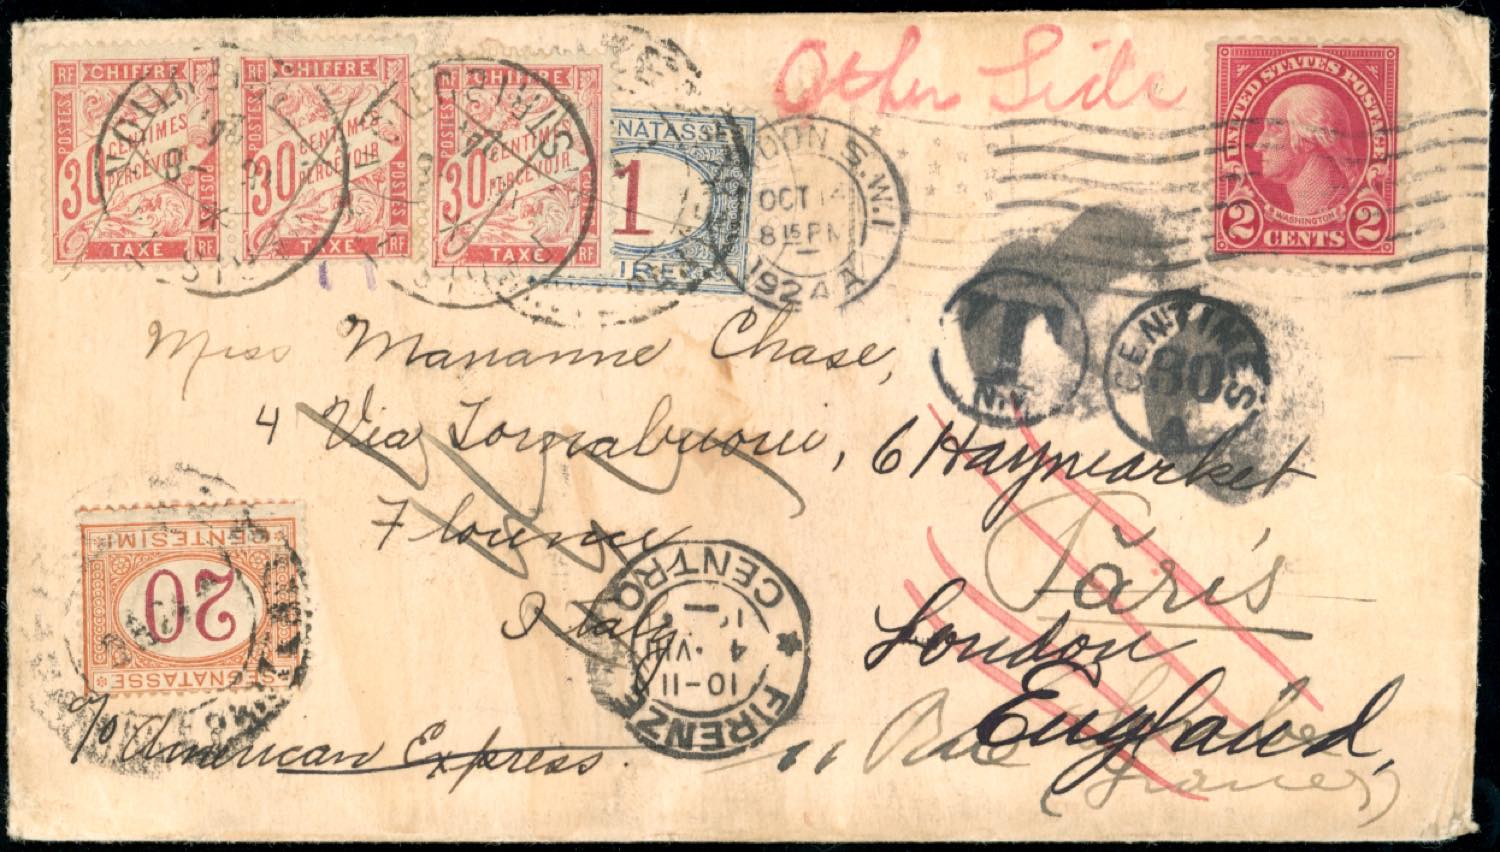 Other Side
RF CHIFFRE
POSTES
30 CENTIMES
PERCEVOIR
POSTES
TAXE RF
RF CHIFFRE
POSTES
30 CENTIMES
PERCEVOIR
POSTES
TAXE RF
RF CHIFFRE
POSTES
30 CENTIMES
PERCEVOIR
TAXE RF
SEGNATASSE
1
LONDON S.W.1
OCT 14
8 15 PM
1924
UNITED STATES POSTAGE
WASHINGTON
2 CENTS 2
T
N.Y.
CENTIMES
30
A
Miss Marianne Chase,
4 Via Tornabuoni,
Florence
Italy
c/o American Express.
6 Haymarket
Paris
London
England,
11 Rue Scribe
(France)
20
CENTESIMI
SEGNATASSE
FIRENZE
CENTRO
10-11
4 . VIII